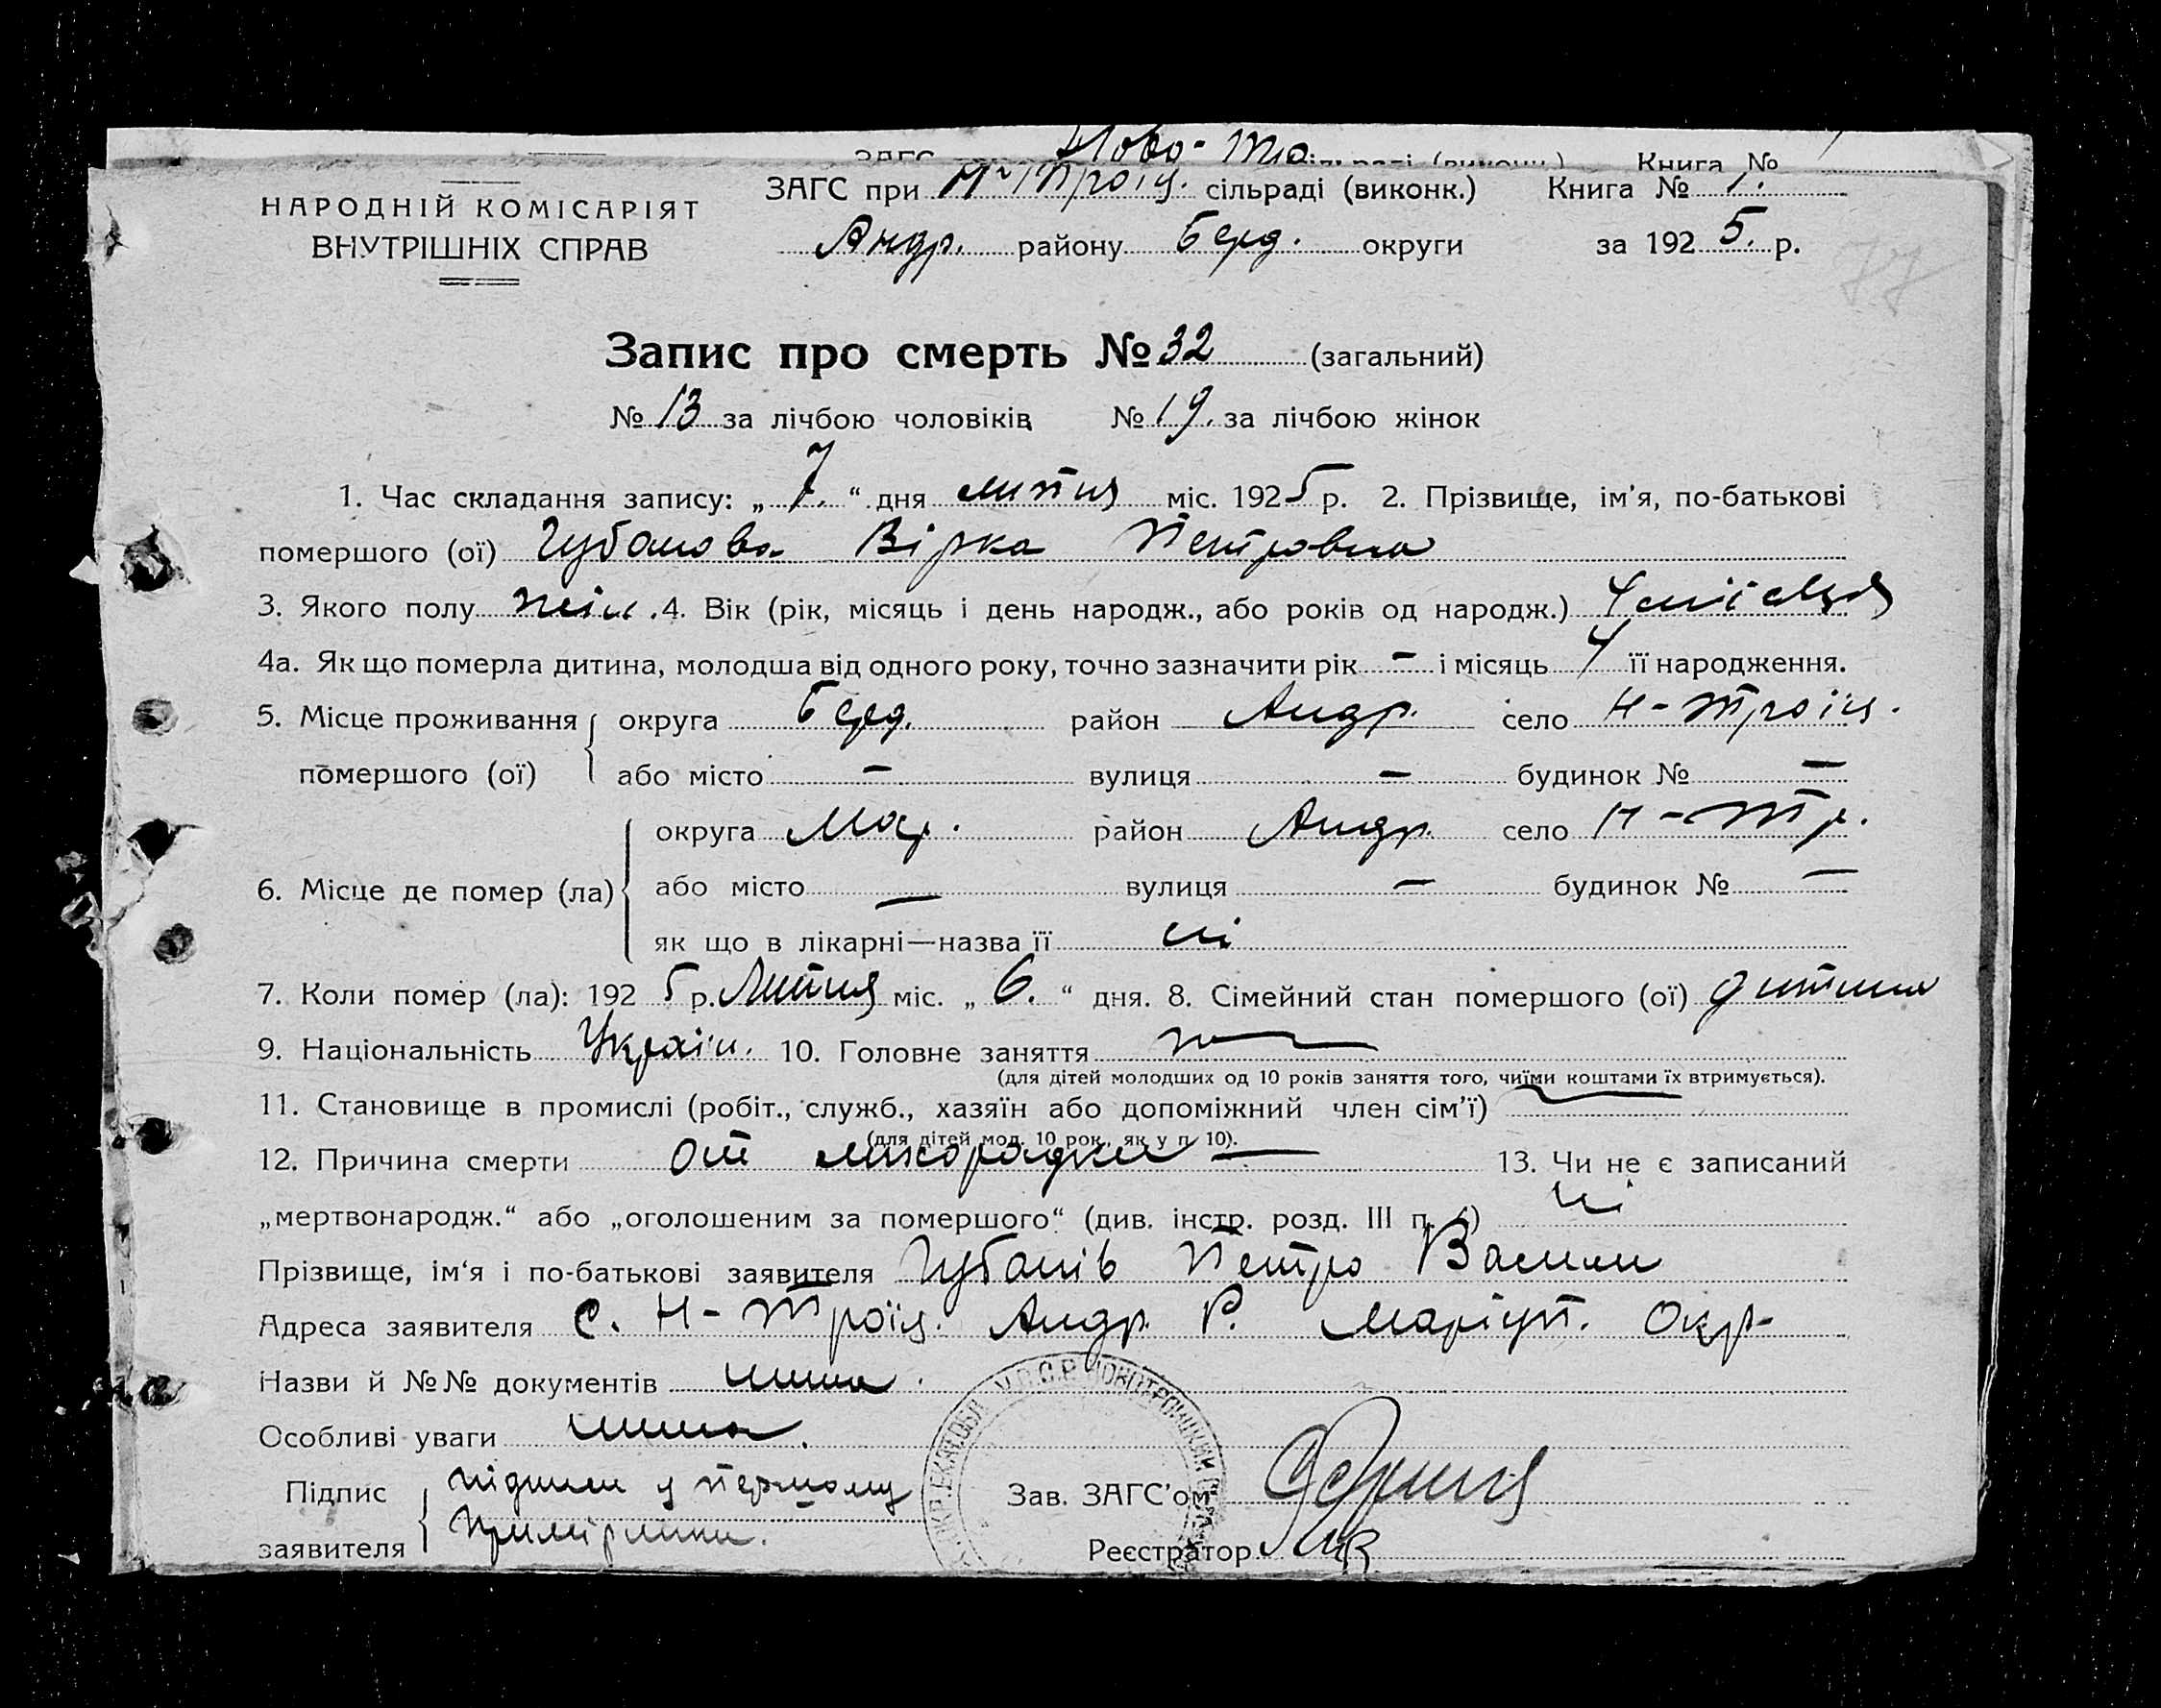 Ново-Тро
ЗАГС сільраді (виконк.) Книга №
ЗАГС при Н-Троіц. сільраді (виконк.) Книга № 1.
НАРОДНІЙ КОМІСАРІЯТ
ВНУТРІШНІХ СПРАВ
Андр. району Берд. округи за 1925. р.
77
Запис про смерть № 32 (загальний)
№ 13 за лічбою чоловіків № 19. за лічбою жінок
1. Час складання запису: „ 7. “ дня липня міс. 1925 р. 2. Прізвище, ім'я, по-батькові
помершого (ої) Губанова Вірка Петровна
3. Якого полу жін. 4. Вік (рік, місяць і день народж., або років од народж.) 4 місяця
4а. Як що померла дитина, молодша від одного року, точно зазначити рік – і місяць 4 її народження.
5. Місце проживання округа Берд. район Андр. село Н-Троіц.
помершого (ої) або місто – вулиця – будинок № –
округа Мар. район Андр. село Н-Тр.
6. Місце де помер (ла) або місто – вулиця – будинок № –
як що в лікарні—назва її ні
7. Коли помер (ла): 1925 р. Липня міс. „ 6. “ дня. 8. Сімейний стан помершого (ої) дитина
9. Національність Украін. 10. Головне заняття
(для дітей молодших од 10 років заняття того, чиїми коштами їх втримується).
11. Становище в промислі (робіт., служб., хазяїн або допоміжний член сім'ї)
(для дітей мол. 10 рок., як у п. 10).
12. Причина смерти от лихорадки – 13. Чи не є записаний
„мертвонародж.“ або „оголошеним за помершого“ (див. інстр. розд. III п. ) ні
Прізвище, ім'я і по-батькові заявителя Губанів Петро Васили
Адреса заявителя с. Н-Троїц. Андр. Р. Маріуп. Окр-
Назви й №№ документів нима.
Особливі уваги нима.
Підпис підписи у першому
заявителя примірнику.
Зав. ЗАГС'ом
Реєстратор